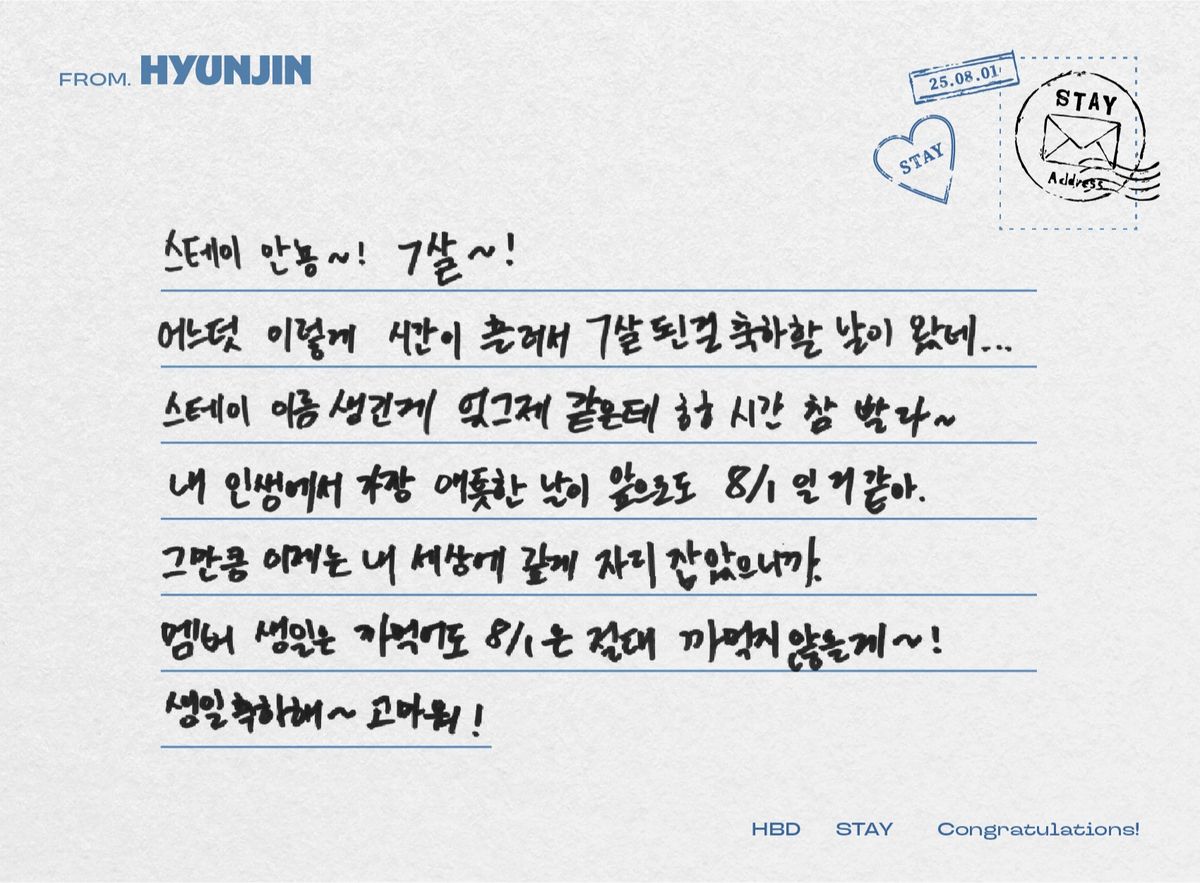 FROM. HYUNJIN
25.08.01
STAY
STAY
Address
스테이 안뇽~! 7살~!
어느덧 이렇게 시간이 흘러서 7살 된걸 축하할 날이 왔네...
스테이 이름 생긴게 엊그제 같은데 ㅎㅎ 시간 참 빨라~
내 인생에서 가장 애틋한 날이 앞으로도 8/1 일 거 같아.
그만큼 이제는 내 세상에 깊게 자리 잡았으니까.
멤버 생일은 까먹어도 8/1은 절대 까먹지 않을게~!
생일축하해~ 고마워!
HBD STAY Congratulations!